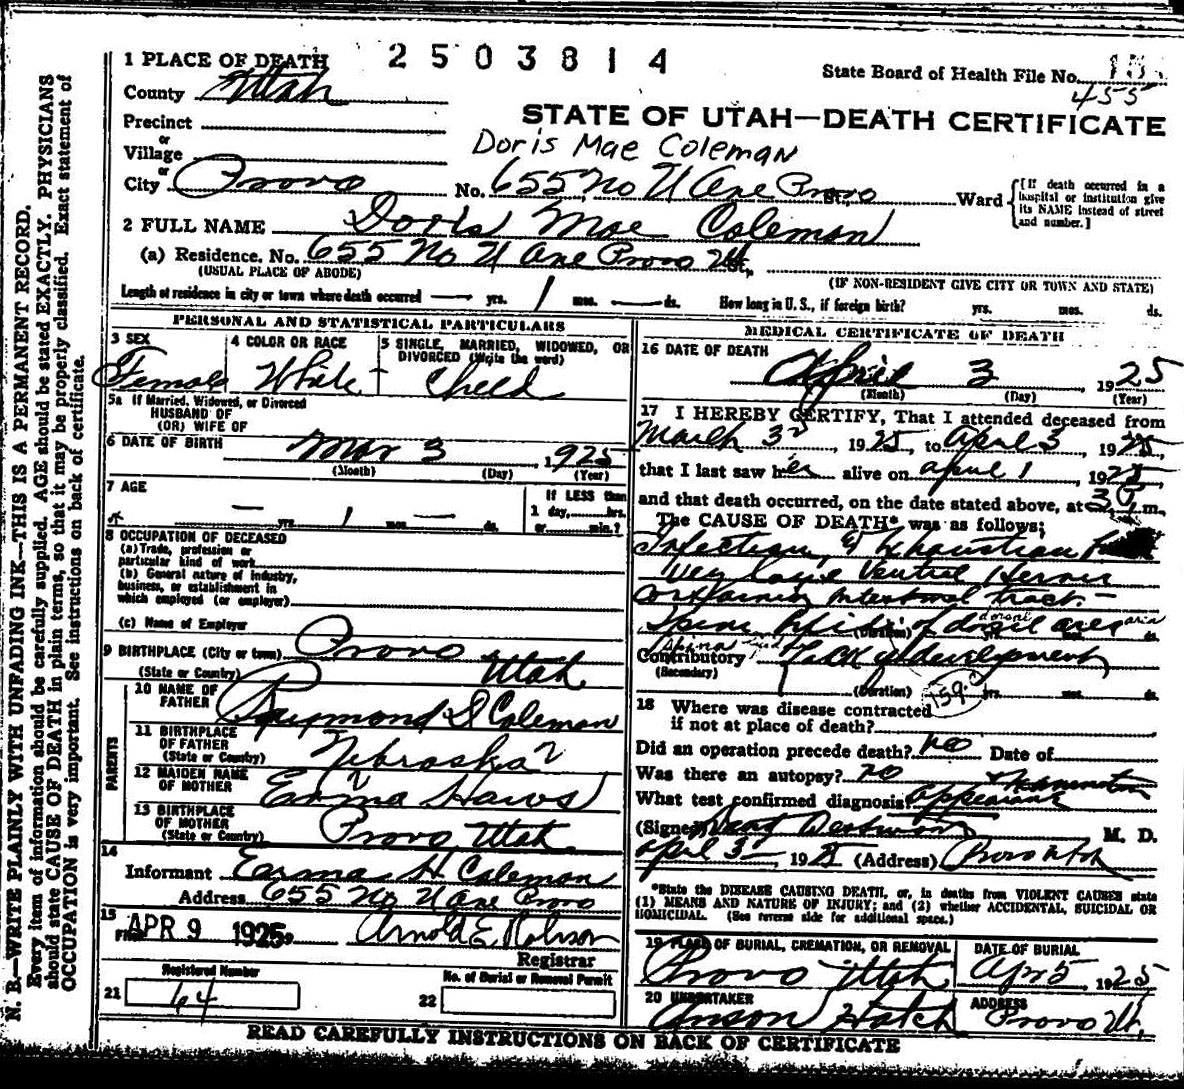 2503814
1 PLACE OF DEATH
State Board of Health File No.
455
County Utah
STATE OF UTAH—DEATH CERTIFICATE
Precinct
or
Village
Doris Mae Coleman
or
City Provo No. 655 No U Ave Provo St., Ward
[If death occurred in a hospital or institution give its NAME instead of street and number.]
2 FULL NAME Doris Mae Coleman
(a) Residence. No. 655 No U Ave Provo Ut.
(USUAL PLACE OF ABODE) (IF NON-RESIDENT GIVE CITY OR TOWN AND STATE)
Length of residence in city or town where death occurred — yrs. 1 mos. — ds. How long in U. S., if foreign birth? yrs. mos. ds.
PERSONAL AND STATISTICAL PARTICULARS
3 SEX
Female
4 COLOR OR RACE
White
5 SINGLE, MARRIED, WIDOWED, OR DIVORCED (Write the word)
Child
5a If Married, Widowed, or Divorced
HUSBAND OF
(OR) WIFE OF
6 DATE OF BIRTH Mar 3, 1925
(Month) (Day) (Year)
7 AGE
— yrs. 1 mos. — ds.
If LESS than
1 day, hrs.
or min.?
8 OCCUPATION OF DECEASED
(a) Trade, profession or
particular kind of work
(b) General nature of industry,
business, or establishment in
which employed (or employer)
(c) Name of Employer
9 BIRTHPLACE (City or town) Provo
(State or Country) Utah
PARENTS
10 NAME OF
FATHER Raymond D Coleman
11 BIRTHPLACE
OF FATHER
(State or Country) Nebraska
12 MAIDEN NAME
OF MOTHER Erma Haws
13 BIRTHPLACE
OF MOTHER
(State or Country) Provo Utah
14
Informant Earma H Coleman
Address 655 No U Ave Provo
15
Filed APR 9 1925
Registrar
Registered Number
21 64
No. of Burial or Removal Permit
22
MEDICAL CERTIFICATE OF DEATH
16 DATE OF DEATH
April 3, 1925
(Month) (Day) (Year)
17 I HEREBY CERTIFY, That I attended deceased from
March 3, 1925, to April 3, 1925,
that I last saw her alive on april 1, 1925,
and that death occurred, on the date stated above, at 3 P. m.
The CAUSE OF DEATH* was as follows:
Infection, & Exhaustion
Very large Ventral Hernia
containing intestinal tract.—
Spina bifida of dorsal area
(Duration) yrs. mos. ds.
Contributory Lack of development
(Secondary)
(Duration) yrs. mos. ds.
159
18 Where was disease contracted
if not at place of death?
Did an operation precede death? no Date of
Was there an autopsy? no
What test confirmed diagnosis? appearance & examination
(Signed) M. D.
april 3—, 1925 (Address) Provo Utah
*State the DISEASE CAUSING DEATH, or, in deaths from VIOLENT CAUSES state
(1) MEANS AND NATURE OF INJURY; and (2) whether ACCIDENTAL, SUICIDAL OR
HOMICIDAL. (See reverse side for additional space.)
19 PLACE OF BURIAL, CREMATION, OR REMOVAL
Provo Utah
DATE OF BURIAL
Apr 5, 1925
20 UNDERTAKER
Anson Hatch
ADDRESS
Provo Ut.
READ CAREFULLY INSTRUCTIONS ON BACK OF CERTIFICATE
N. B.—WRITE PLAINLY WITH UNFADING INK—THIS IS A PERMANENT RECORD.
Every item of information should be carefully supplied. AGE should be stated EXACTLY. PHYSICIANS
should state CAUSE OF DEATH in plain terms, so that it may be properly classified. Exact statement of
OCCUPATION is very important. See instructions on back of certificate.